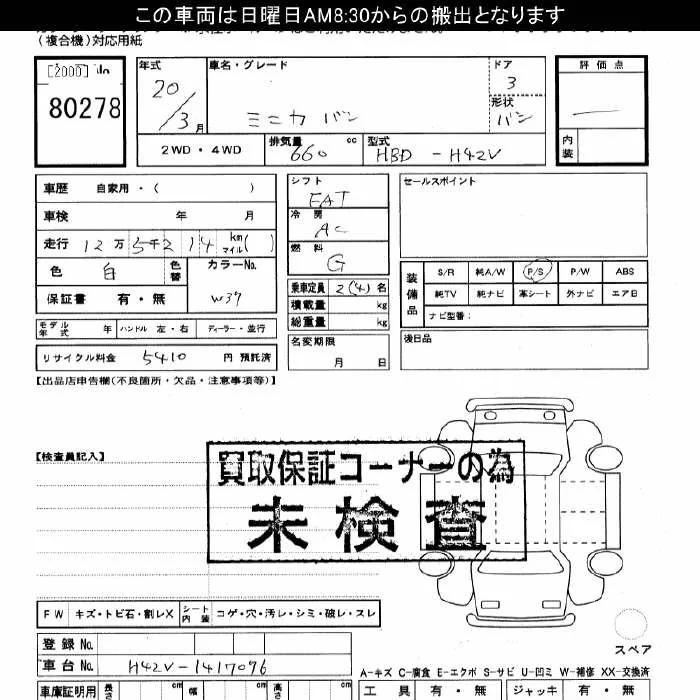 この車両は日曜日AM8:30からの搬出となります
(複合機)対応用紙
[2000] No
80278
年式 車名・グレード ドア 評価点
20/3月 ミニカ バン 3
形状 バン
2WD・4WD 排気量 660 cc 型式 HBD - H42V 内装
車歴 自家用・( )
車検 年 月
走行 12万5千214 km マイル ( )
色 白 色替 カラーNo.
保証書 有・無 W37
モデル年式 年 ハンドル 左・右 ディーラー・並行
リサイクル料金 5410 円 預託済
シフト FAT
冷房 AC
燃料 G
乗車定員 2(4) 名
積載量 kg
総重量 kg
名変期限
月 日
セールスポイント
装備品 S/R 純A/W P/S P/W ABS
純TV 純ナビ 革シート 外ナビ エアB
ナビ型番:
後日品
【出品店申告欄(不良箇所・欠品・注意事項等)】
【検査員記入】
買取保証コーナーの為
未検査
FW キズ・トビ石・割レX シート内装 コゲ・穴・汚レ・シミ・破レ・スレ
スペア
登録No.
車台No. H42V-1417096
A-キズ C-腐食 E-エクボ S-サビ U-凹ミ W-補修 XX-交換済
車庫証明用 長さ cm 幅 cm 高さ cm 工具 有・無 ジャッキ 有・無